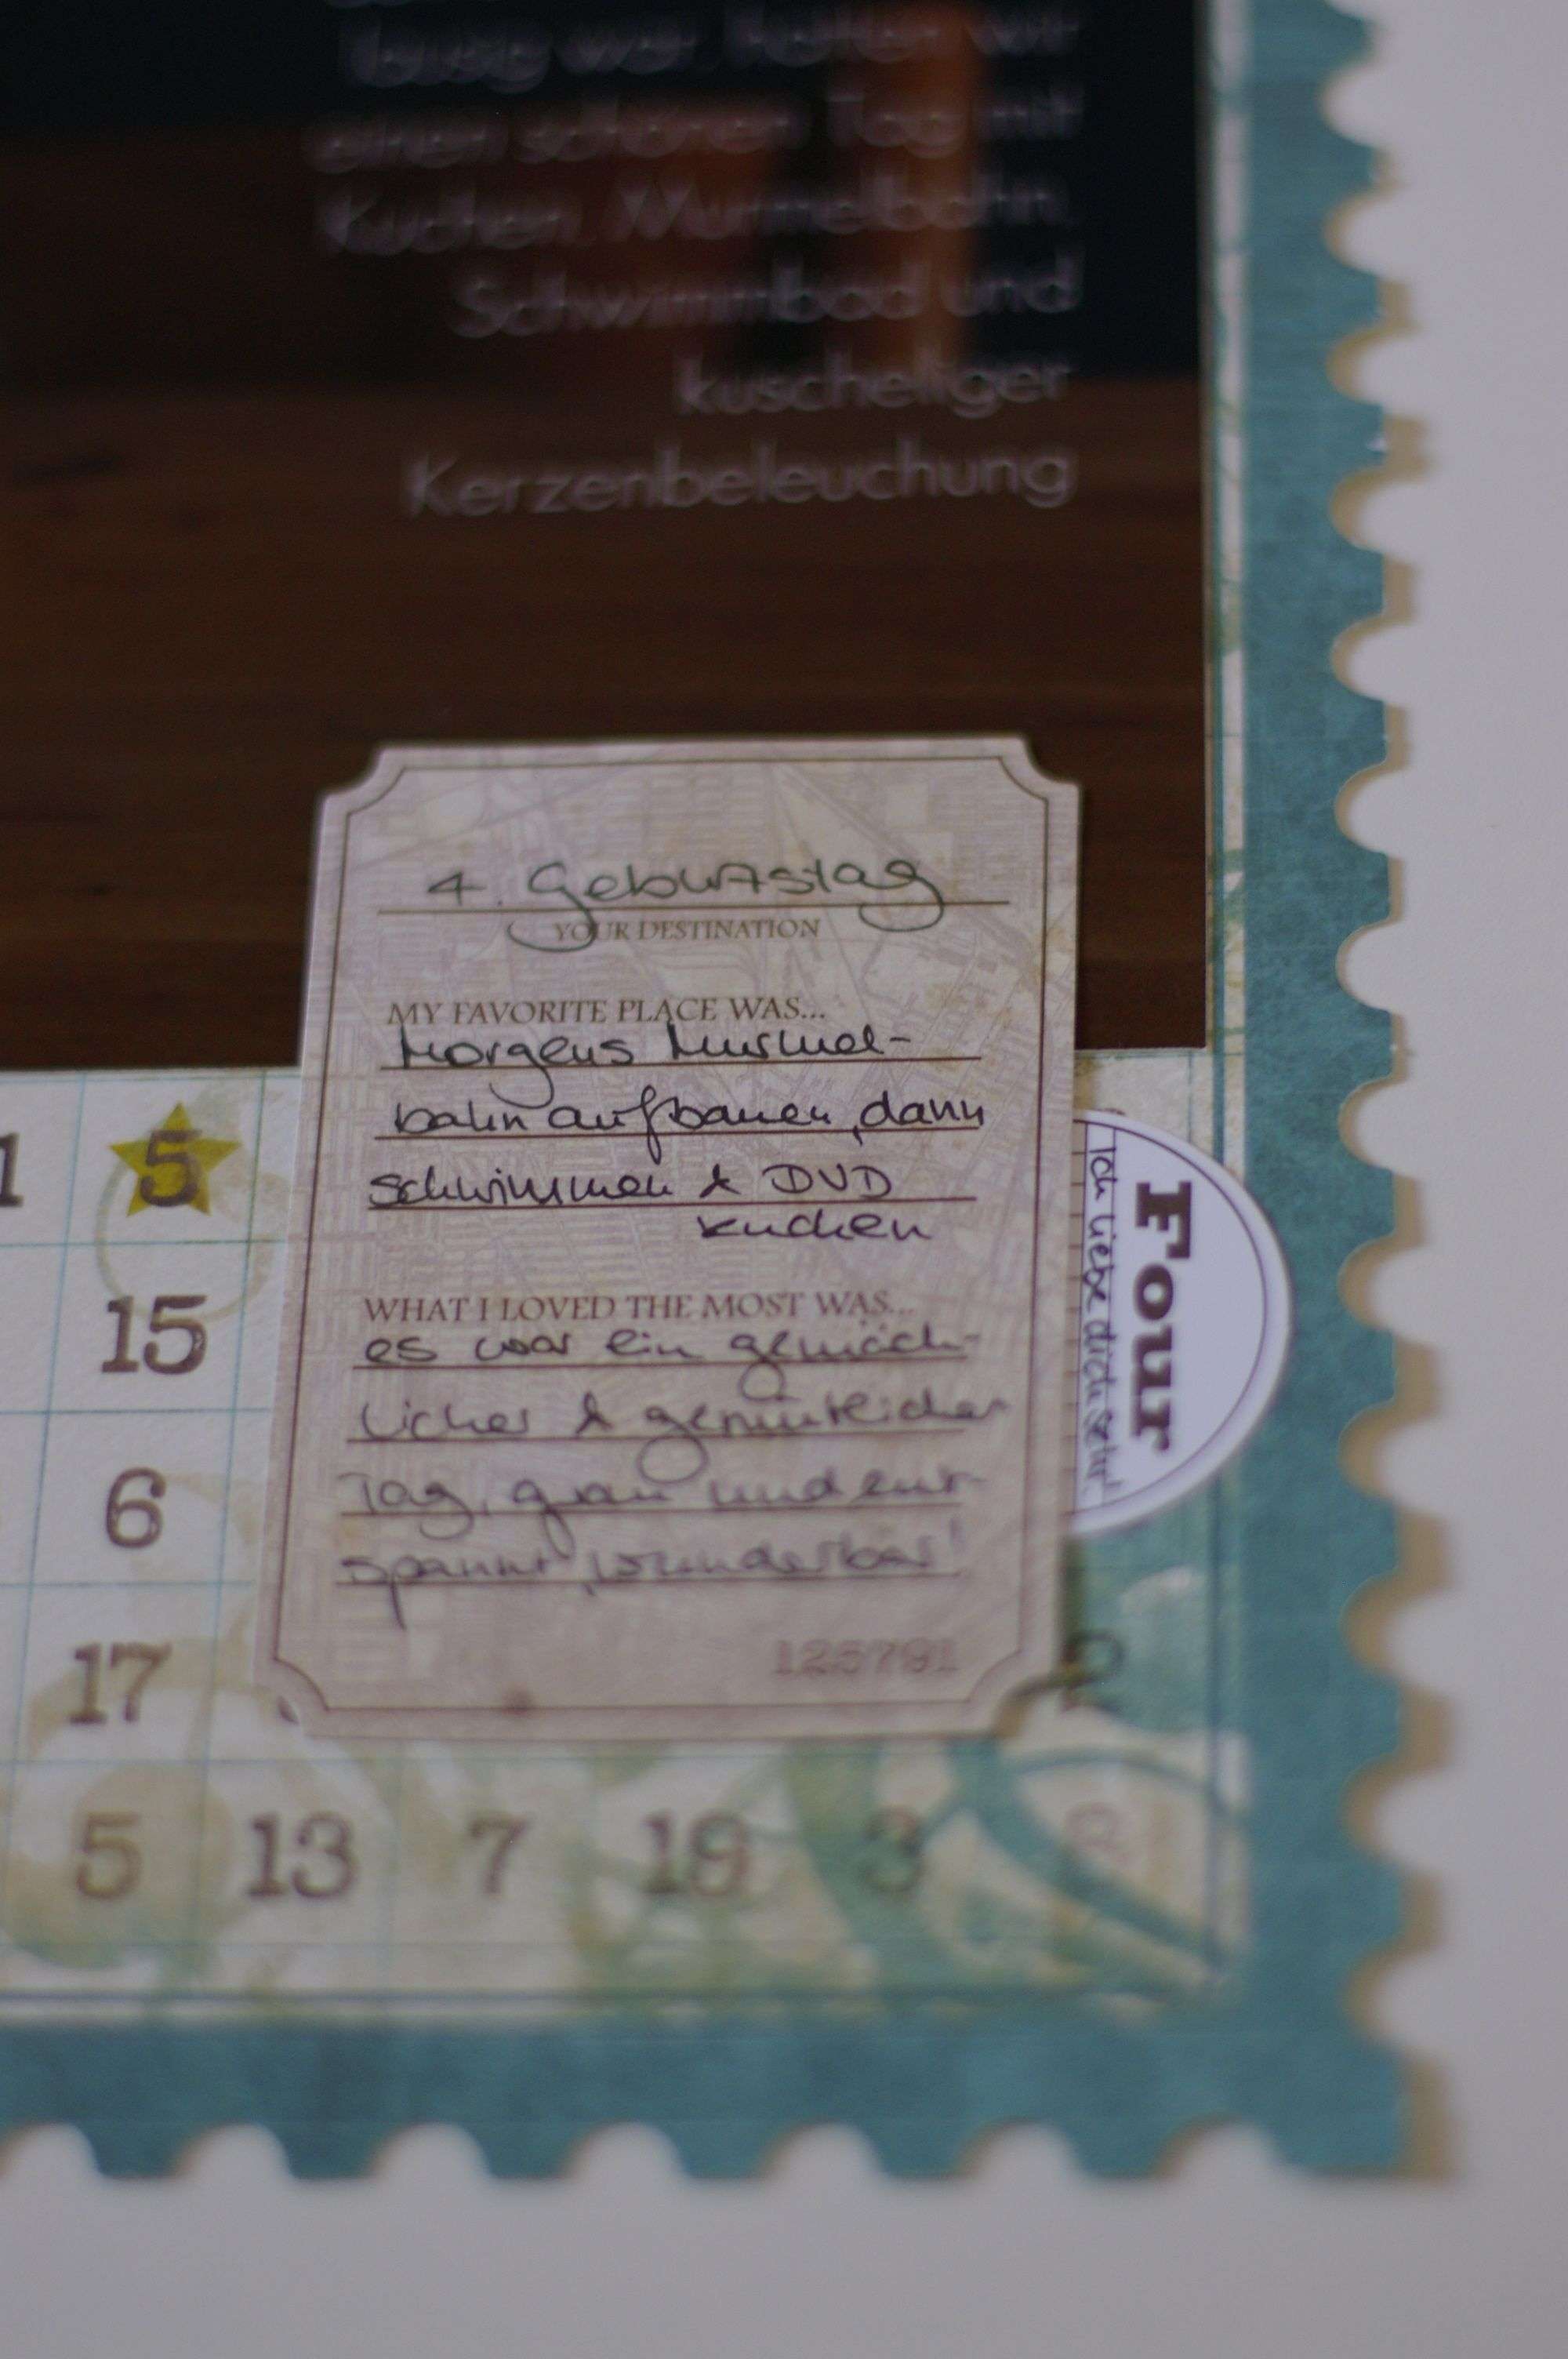 lausig war, hatten wir
einen schönen Tag mit
Kuchen, Murmelbahn,
Schwimmbad und
kuscheliger
Kerzenbeleuchung
4. Geburtstag
YOUR DESTINATION
MY FAVORITE PLACE WAS...
Morgens Murmel-
bahn aufbauen, dann
schwimmen & DVD
Kuchen
WHAT I LOVED THE MOST WAS...
es war ein gemäch-
licher & gemütlicher
Tag, grau und ent-
spannt, wunderbar!
125791
Four
Ich liebe dich sehr!
1 5
15
6
17
5 13 7 19 3 8